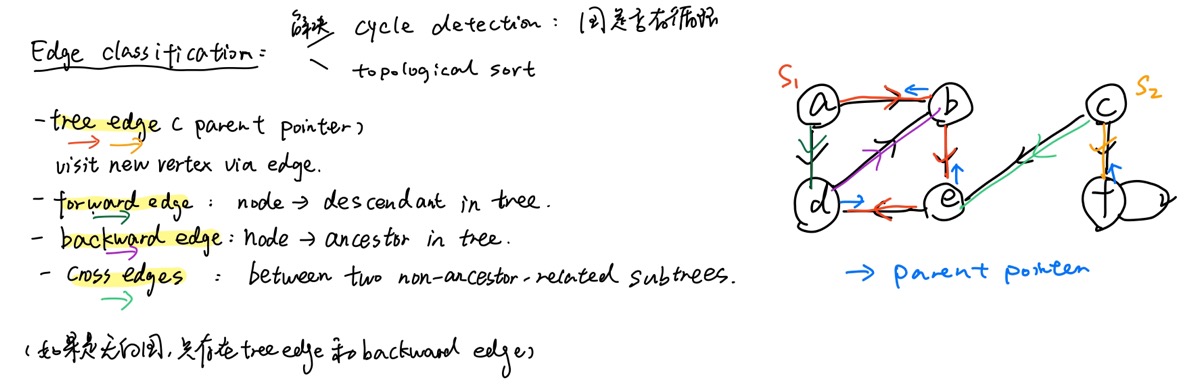 解决 cycle detection: 图是否有循环
Edge classification:
topological sort
- tree edge (parent pointer)
visit new vertex via edge.
- forward edge: node → descendant in tree.
- backward edge: node → ancestor in tree.
- cross edges: between two non-ancestor-related subtrees.
(如果是无向图,只存在tree edge和backward edge)
S1
a
b
c
S2
d
e
f
→ parent pointer